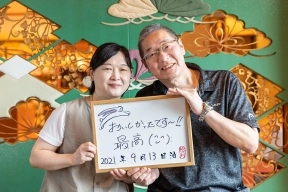 おいしかったです〜!!
最高(^^)
2021年9月13日